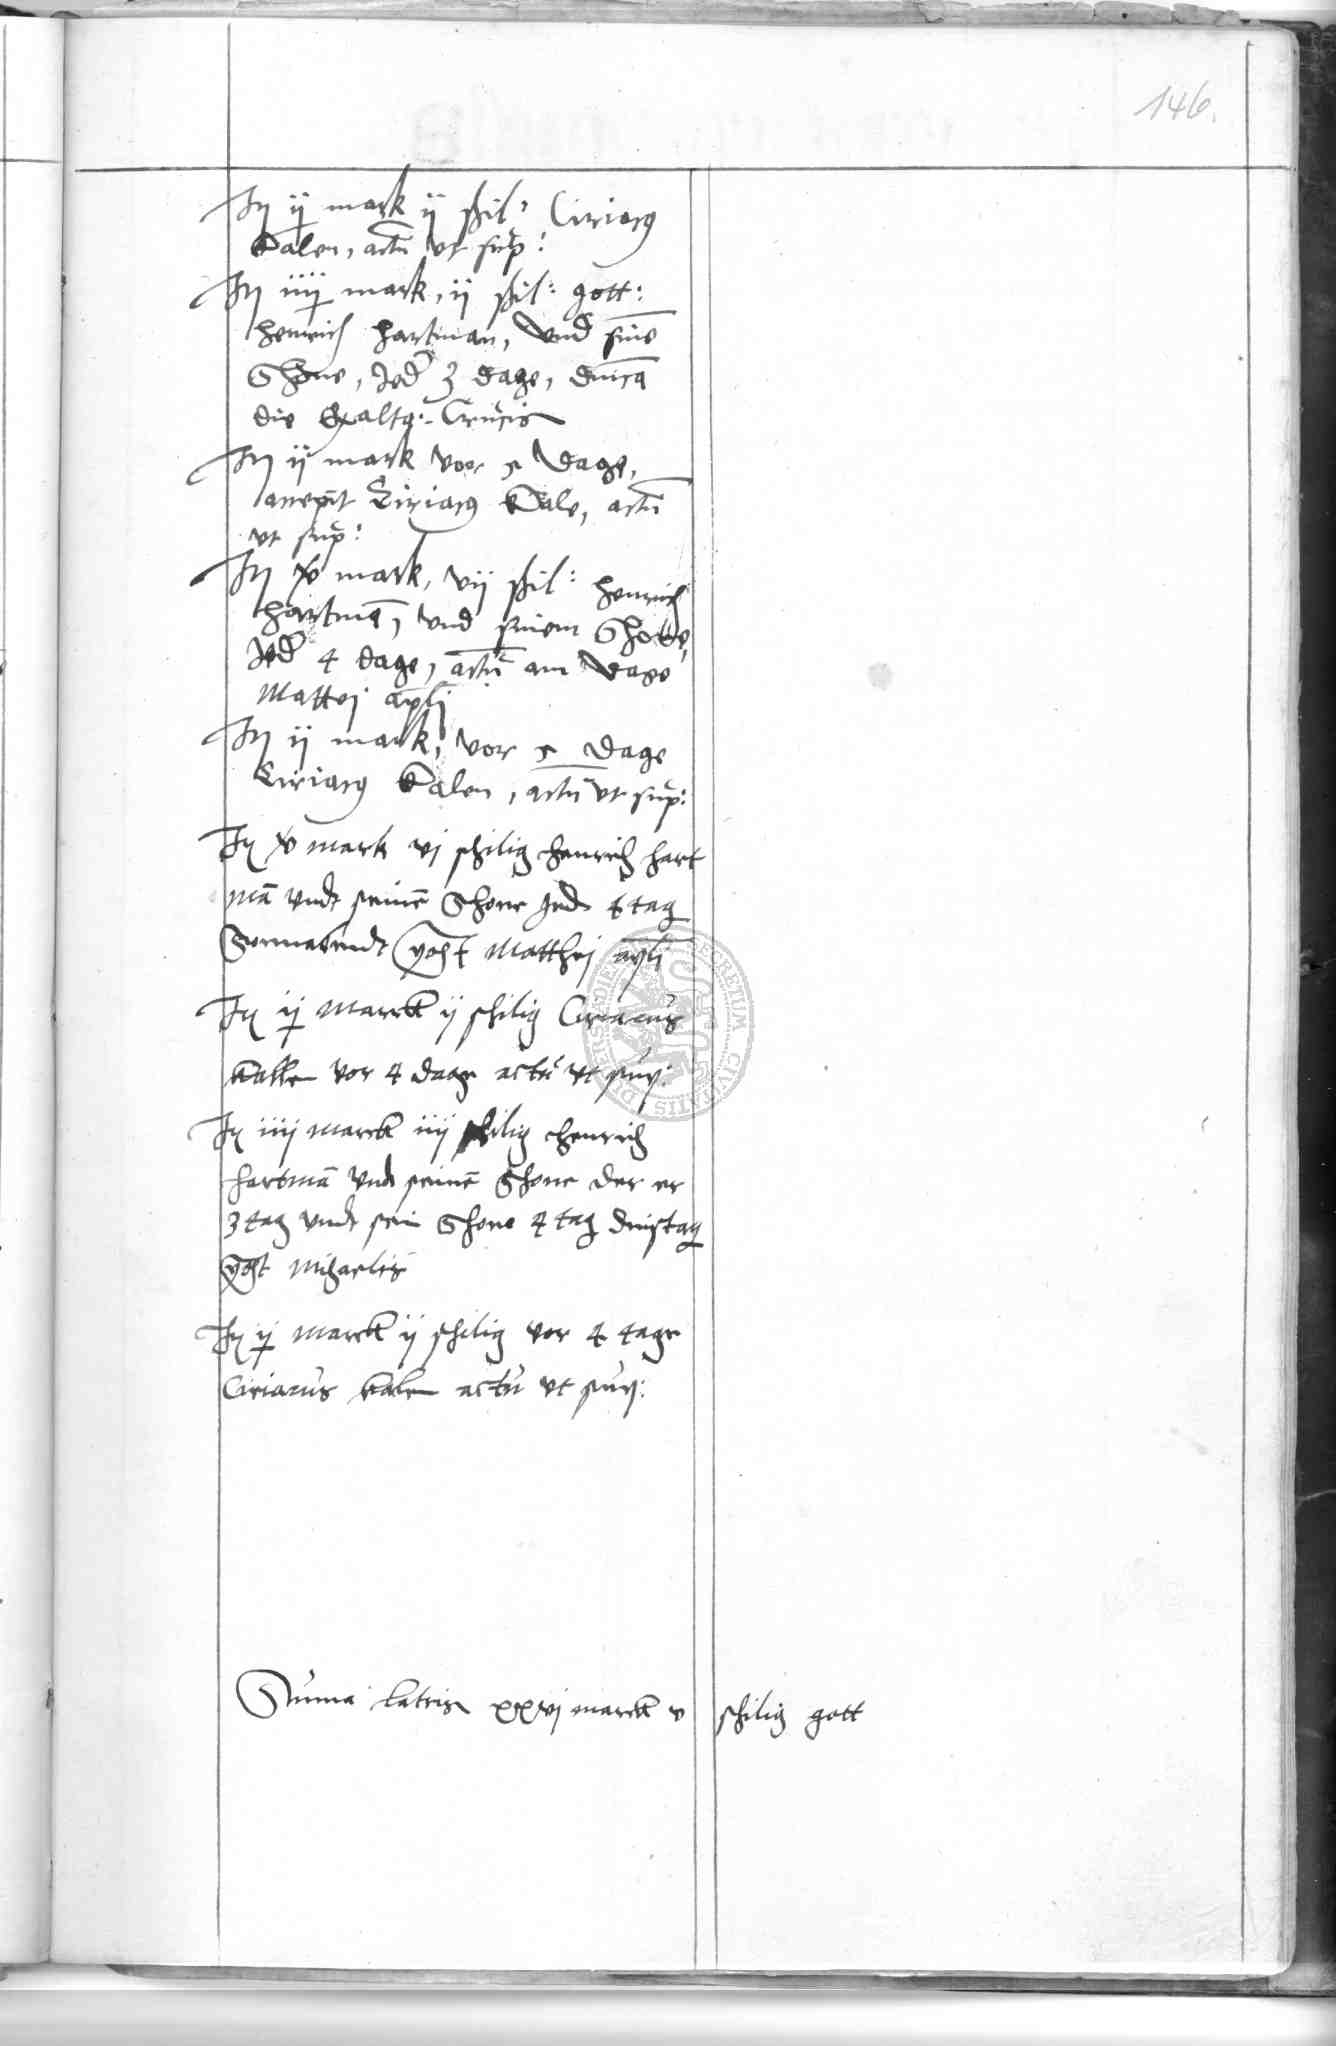 146.
Itꝫ ij mark ij ßil: Ciriacꝰ
Kalen, actū vt sup:
Itꝫ iiij mark, ij ßil: gott:
Henrich Hartman, vnd sine
Shone, Jed 3 dage, dnica
die Exalta: Crucis
Itꝫ ij mark vor 5 dage,
accepit Ciriacꝰ Kale, actū
vt sup:
Itꝫ v mark, vij ßil: Henrich
Hartmā, vnd sinem Shone,
Jed 4 dage, actū am dage
Mattej apli
Itꝫ ij mark, vor 5 dage
Ciriacꝰ Kalen, actū vt sup:
Itꝫ v mark vj schilig Henrich Hart
mā vndt seinē Shone Jed 4 tag
Sonnabendt post Matthej apli
Itꝫ ij Marck ij schilig Ciriacus
Kallen vor 4 dage actū vt sup:
Itꝫ iiij Marck iiij schilig Henrich
Hartmā vnd seinē Shone der er
3 tag vndt sein Shone 4 tag dinstag
post Michaelis
Itꝫ ij Marck ij schilig vor 4 tage
Ciriacus Kalen actū vt sup:
Suma Lateris xxvj marck v schilig gott